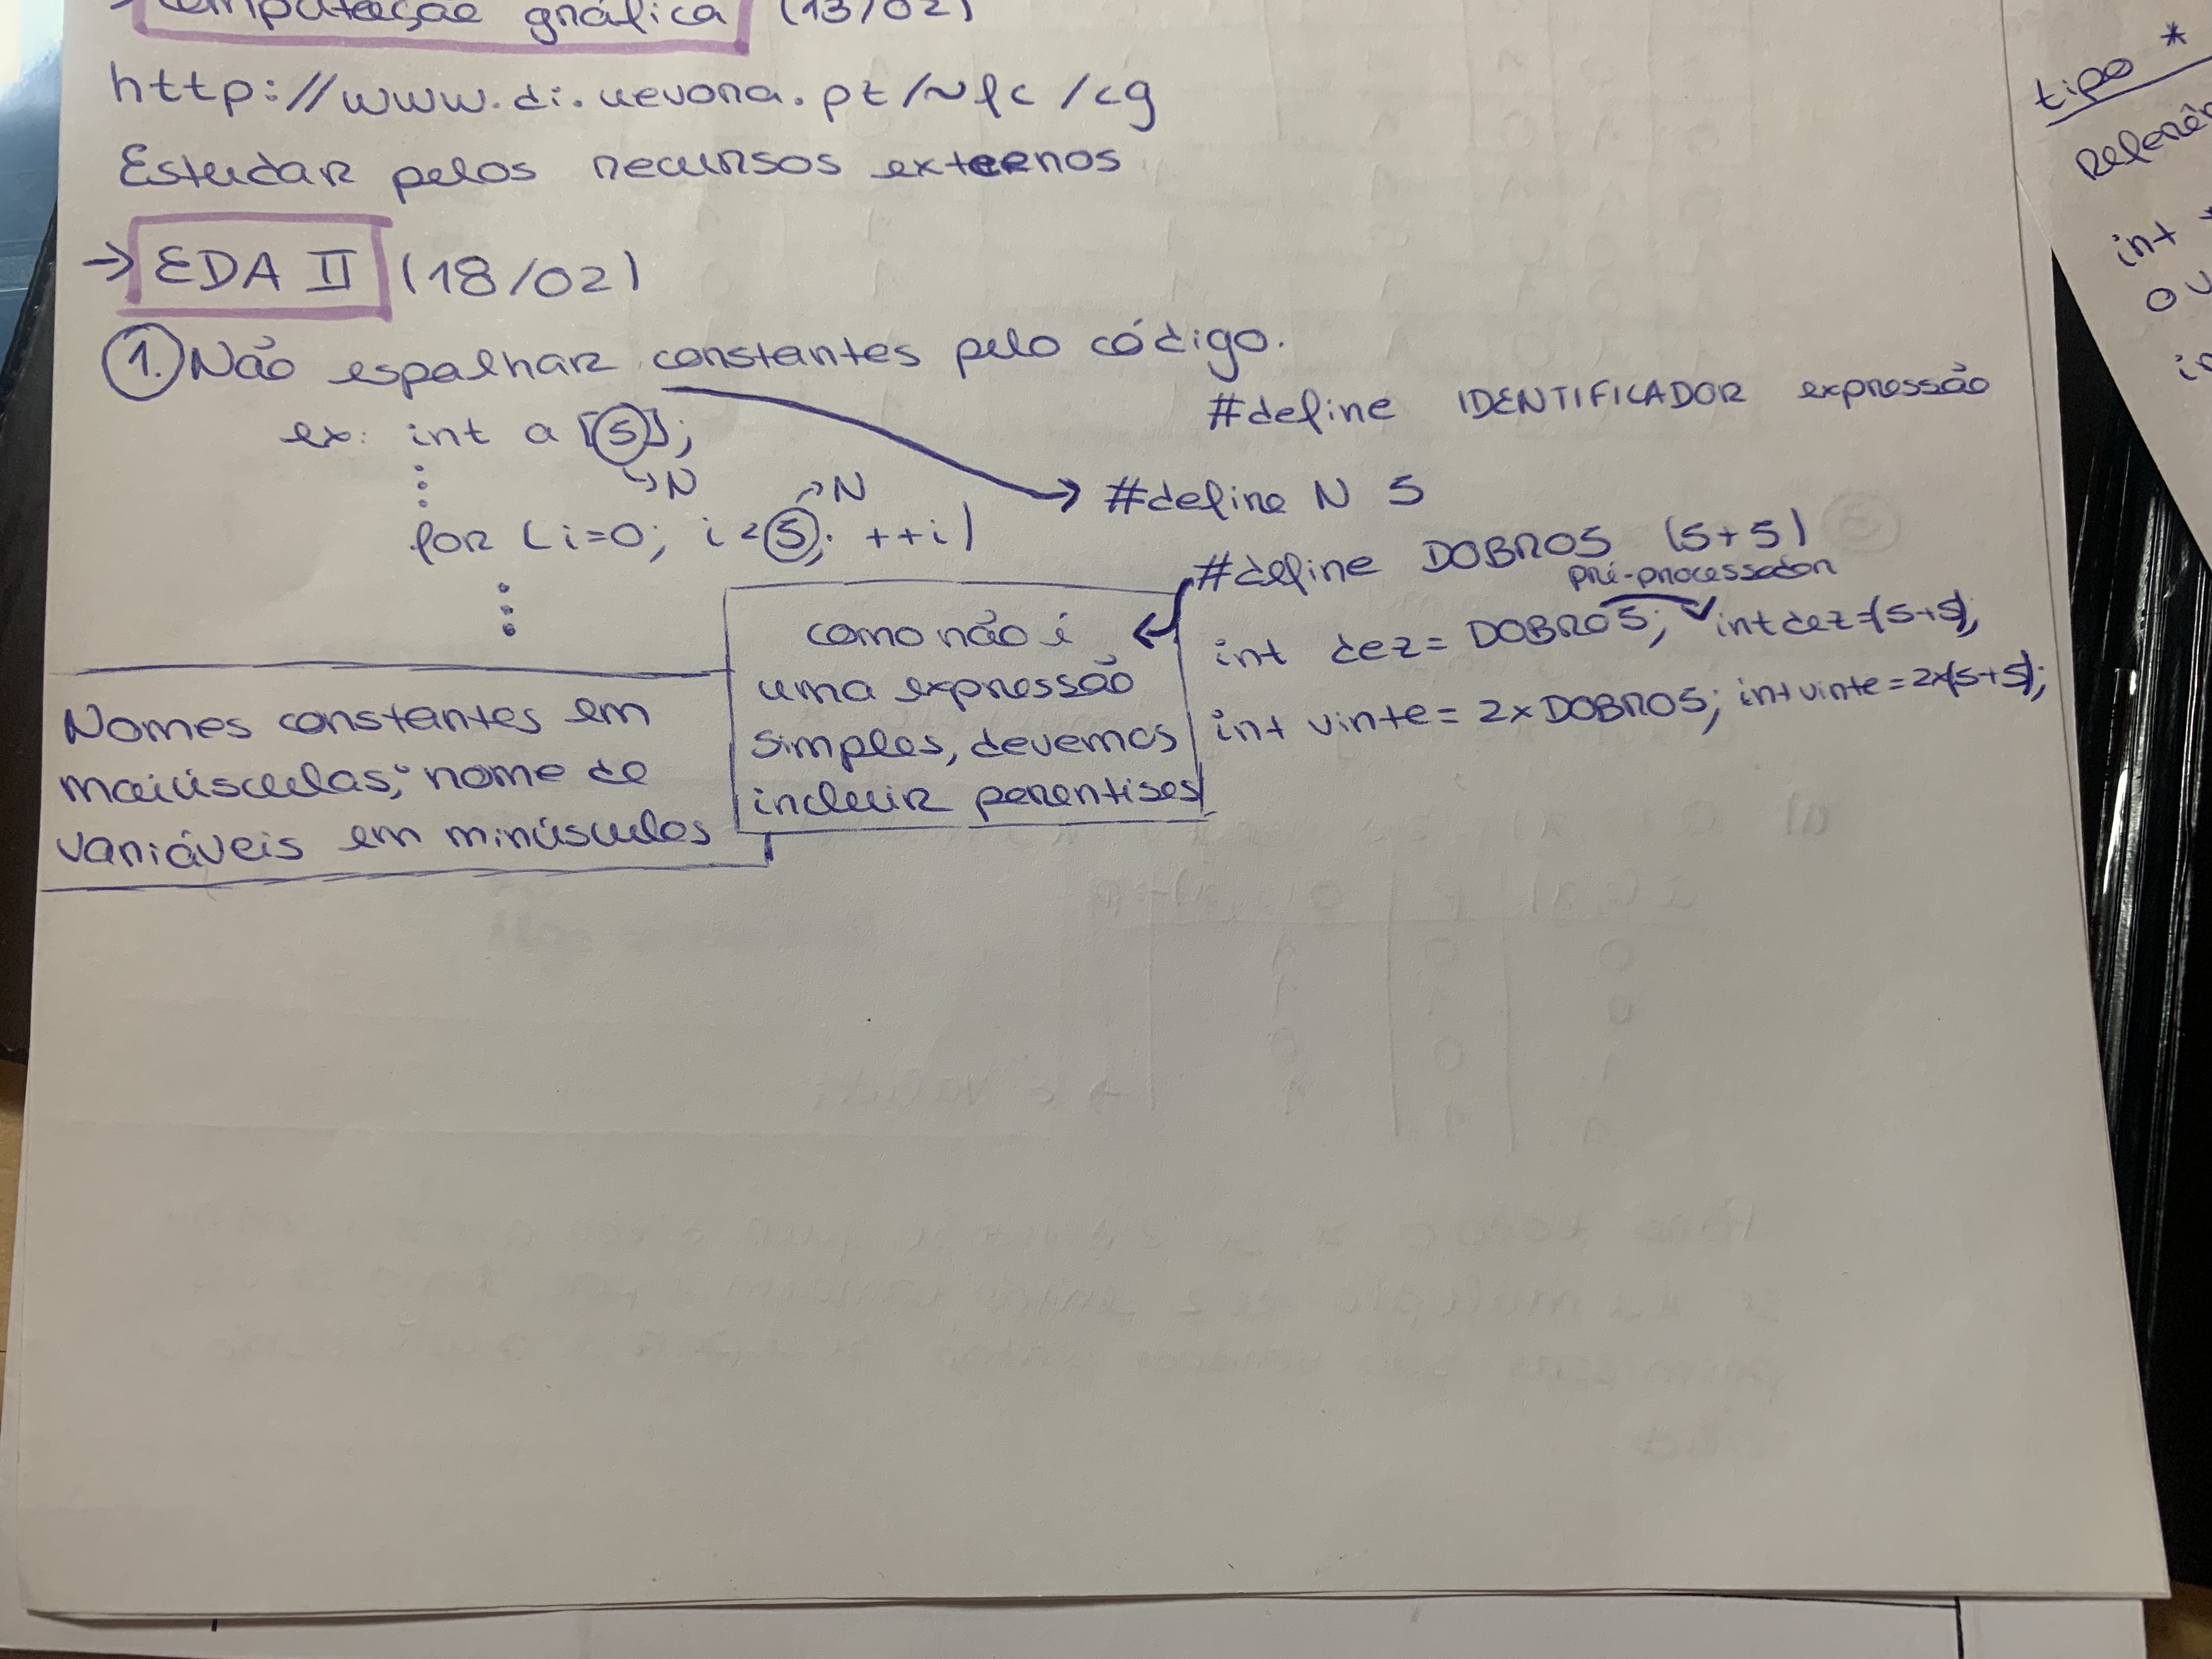 computação gráfica (13/02)
http://www.di.uevora.pt/~fc/cg
Estudar pelos recursos externos
→ EDA II (18/02)
1. Não espalhar constantes pelo código.
#define IDENTIFICADOR expressão
ex: int a [5];
↳ N
→ N
→ #define N 5
for (i=0; i<5; ++i)
#define DOBRO5 (5+5)
pré-processador
int dez = DOBRO5; int dez=(5+5);
int vinte = 2×DOBRO5; int vinte = 2×(5+5);
como não é
uma expressão
simples, devemos
incluir parentises
Nomes constantes em
maiúsculas; nome de
variáveis em minúsculos
tipo *
int *
ou